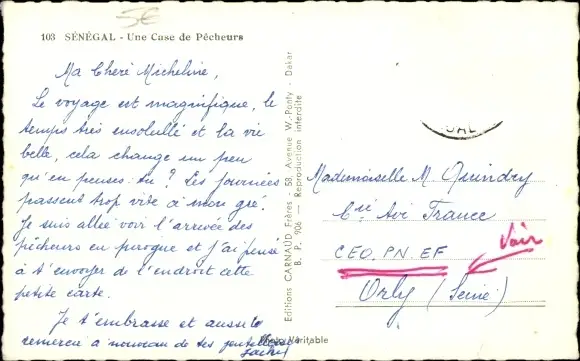 5€
103 SÉNÉGAL - Une Case de Pêcheurs
Ma Chère Micheline,
Le voyage est magnifique, le
temps très ensoleillé et la vie
belle, cela change un peu
qu'en penses-tu ? Les journées
passent trop vite à mon gré.
Je suis allée voir l'arrivée des
pêcheurs en pirogue et j'ai pensé
à t'envoyer de l'endroit cette
petite carte.
Je t'embrasse et aussi te
remercie à nouveau de tes
Editions CARNAUD Frères - 58, Avenue W.-Ponty - Dakar
B. P. 906 — Reproduction interdite
Véritable
Mademoiselle M. Quindry
Cie Air France
CEO.PN.EF
Voir
Orly (Seine)